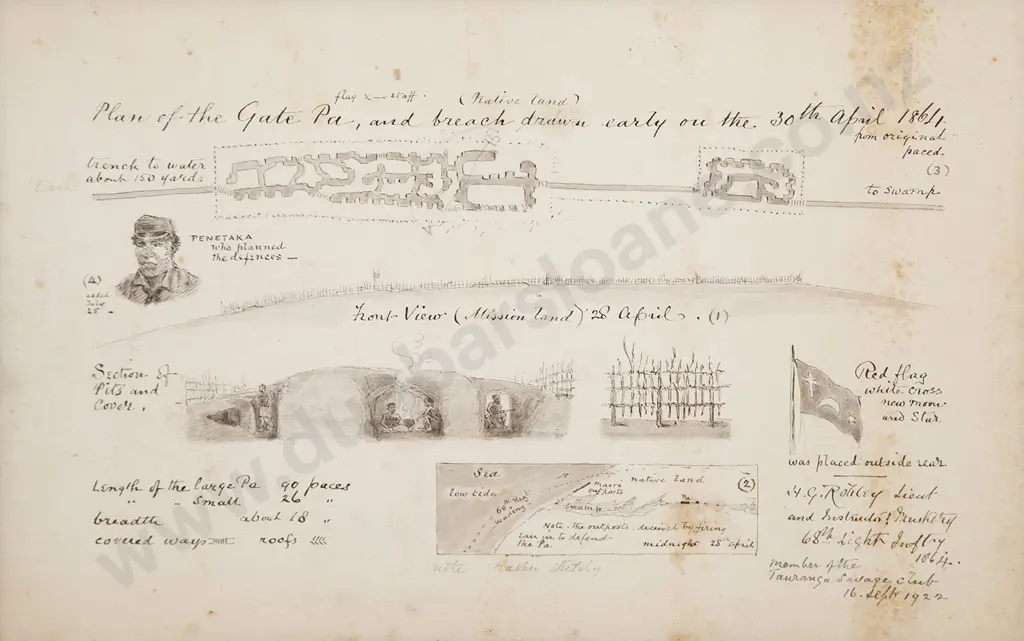 flag x — staff. (Native land)
Plan of the Gate Pa, and breach drawn early on the 30th April 1864.
from original
paced.
(3)
trench to water
about 150 yards
to swamp
PENETAKA
who planned
the defences —
(4)
added
July
25
Front View (Mission land) 28 April. (1)
Section of
Pits and
Cover.
Red flag
white cross
new moon
and Star
was placed outside rear
Length of the large Pa 90 paces
" " Small 26 "
breadth about 18 "
covered ways roofs
Sea
low tide
68th Regt
wading
maori
outposts
swamp
native land
Pa
(2)
Note. the outposts deceived by firing
ran in to defend
the Pa midnight 28th april
note rather sketchy
H.G. Robley Lieut
and Instructor Musketry
68th Light Inftry
1864.
member of the
Tauranga Savage Club
16. Sept 1922
www.dunbarsloane.co.nz